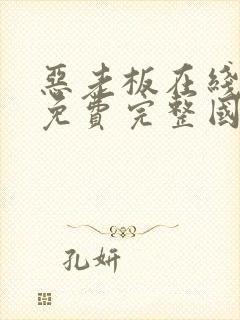 恶老板在线
免費完整國
孔妍